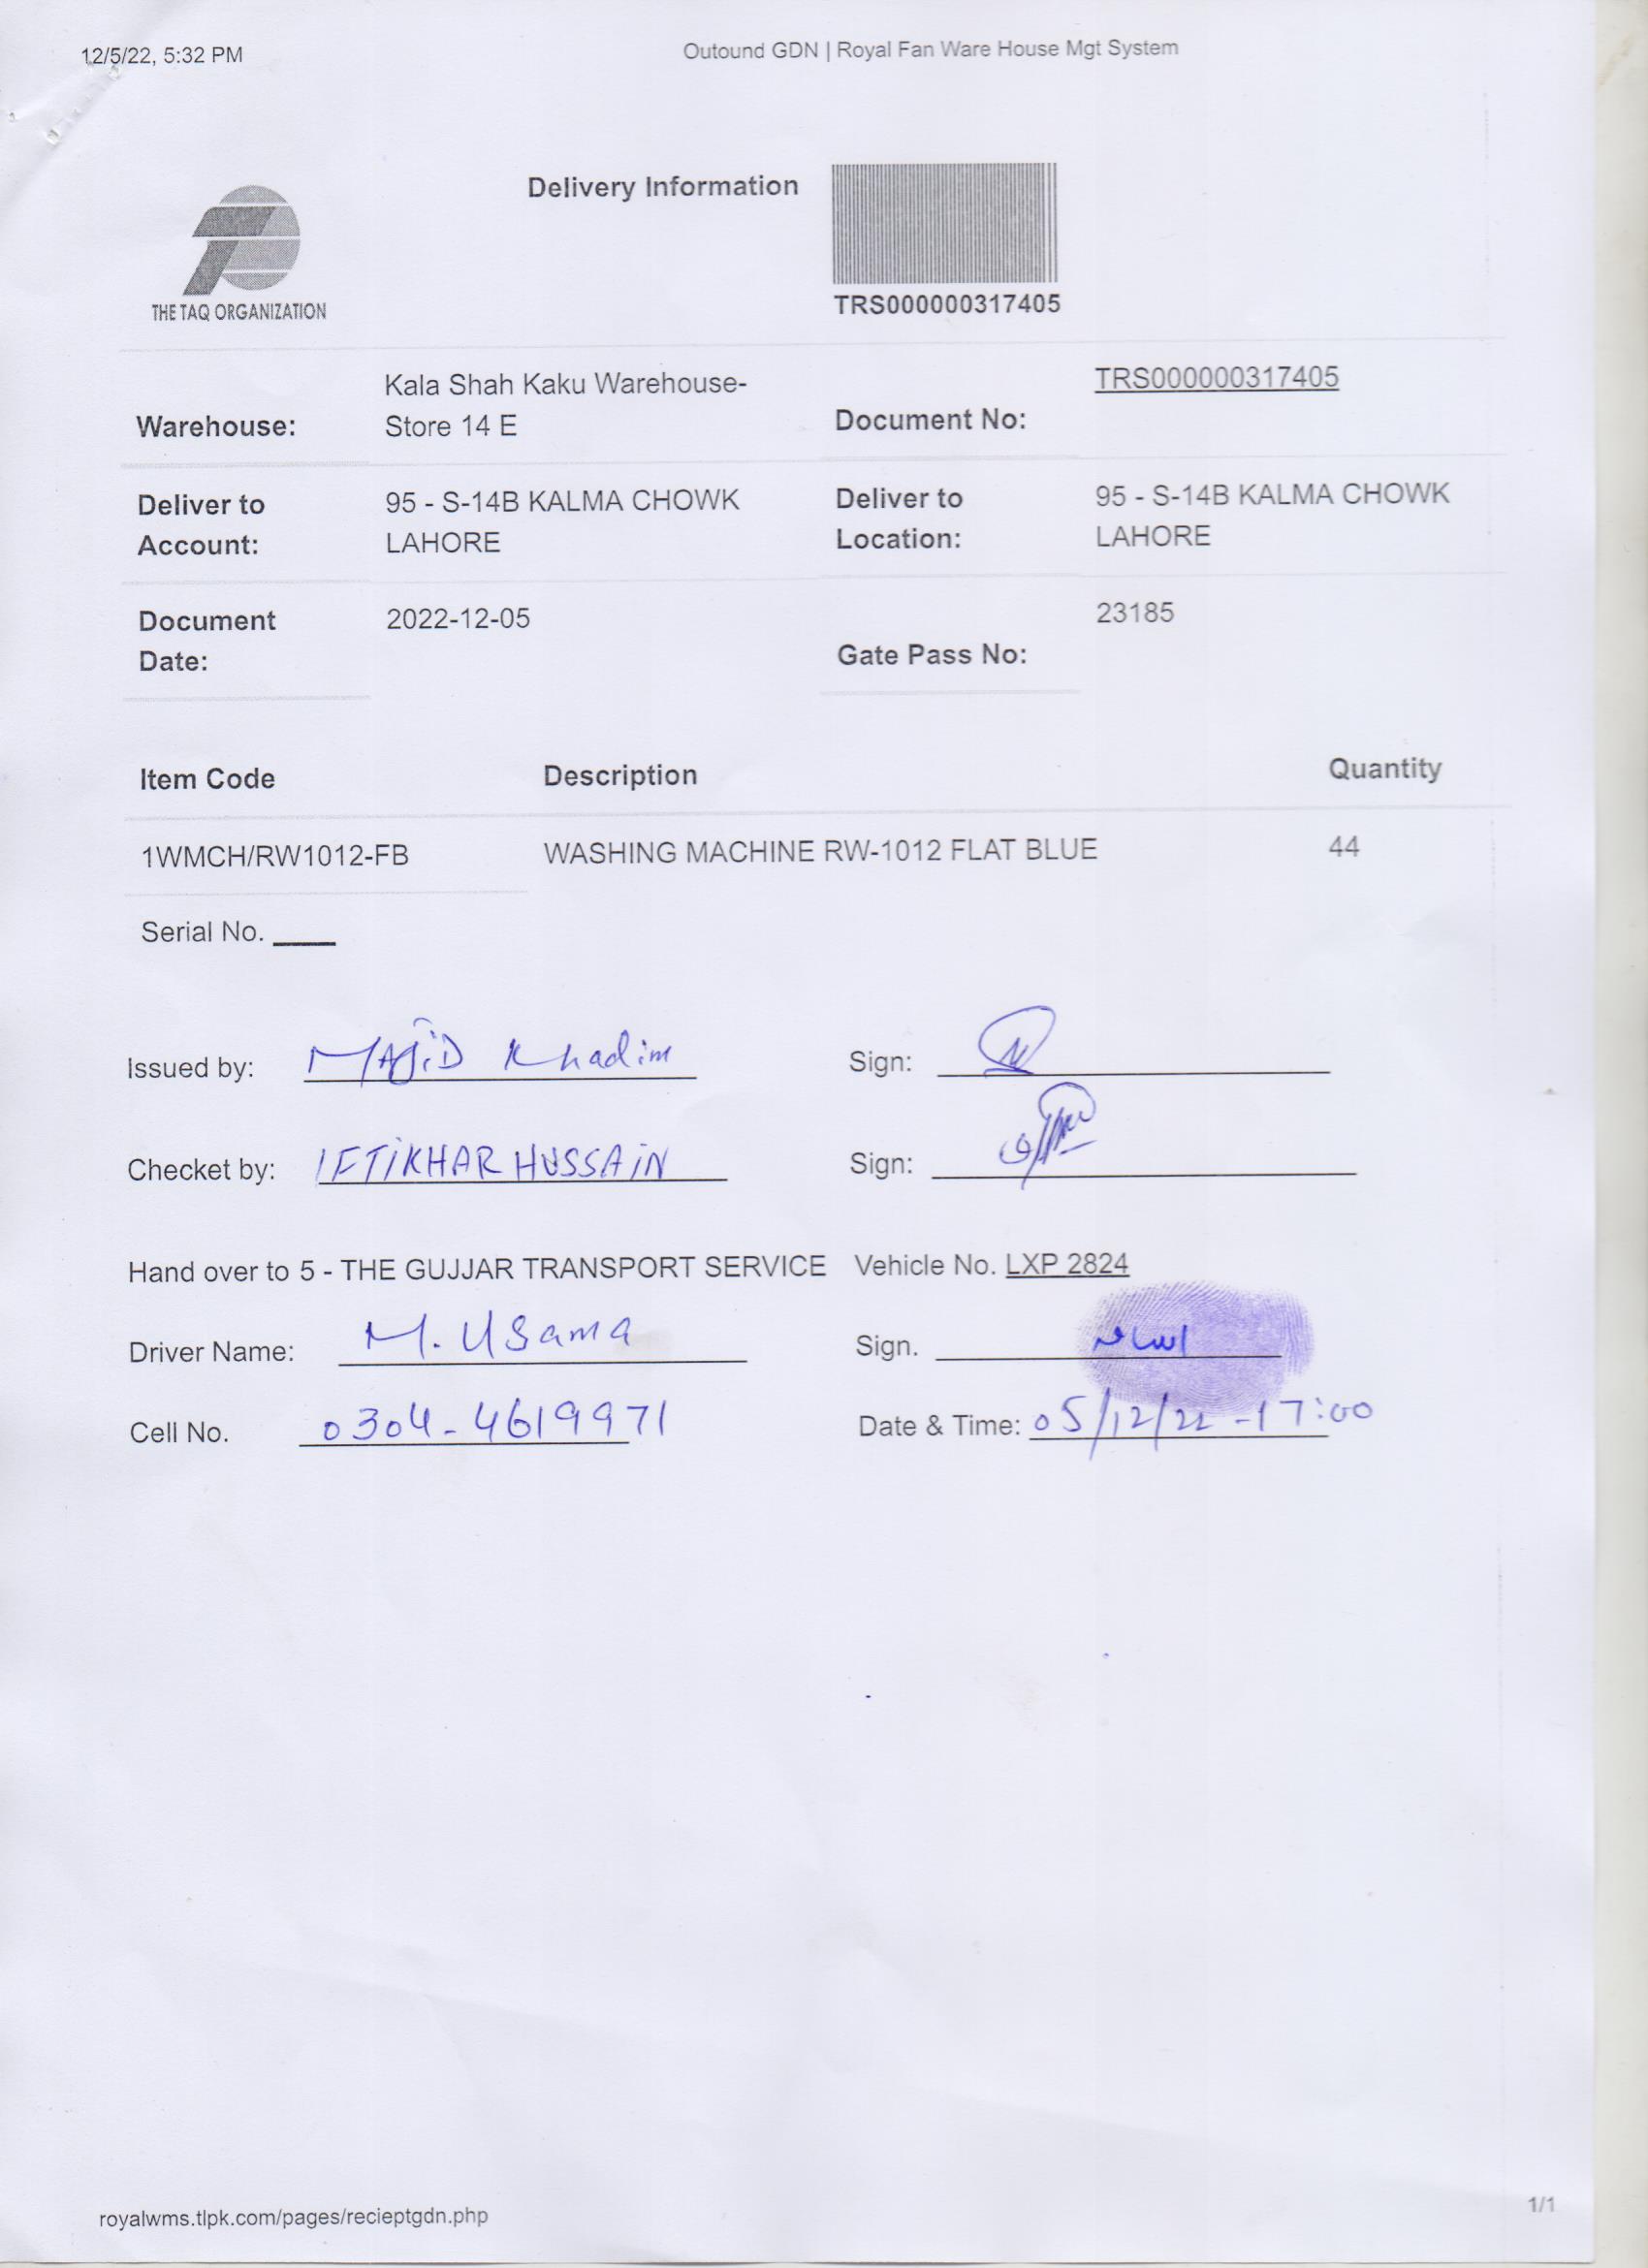 12/5/22, 5:32 PM
Outound GDN | Royal Fan Ware House Mgt System
Delivery Information
THE TAQ ORGANIZATION
TRS000000317405
Warehouse: Kala Shah Kaku Warehouse-
Store 14 E
Document No: TRS000000317405
Deliver to
Account: 95 - S-14B KALMA CHOWK
LAHORE
Deliver to
Location: 95 - S-14B KALMA CHOWK
LAHORE
Document
Date: 2022-12-05
Gate Pass No: 23185
Item Code Description Quantity
1WMCH/RW1012-FB WASHING MACHINE RW-1012 FLAT BLUE 44
Serial No.
Issued by: MAJiD Khadim Sign:
Checket by: IFTiKHAR HUSSAiN Sign:
Hand over to 5 - THE GUJJAR TRANSPORT SERVICE Vehicle No. LXP 2824
Driver Name: M. Usama Sign. اسامہ
Cell No. 0304-4619971 Date & Time: 05/12/22 -17:00
royalwms.tlpk.com/pages/recieptgdn.php
1/1